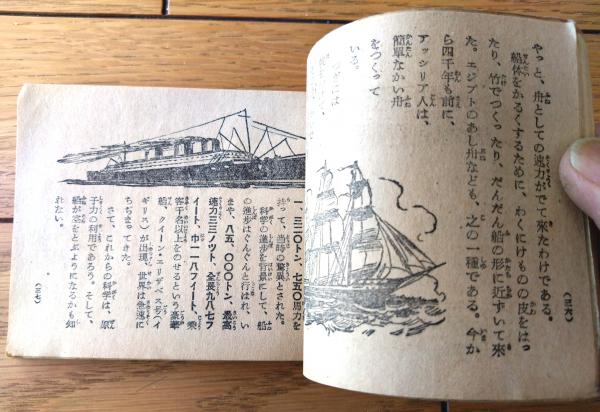 やっと、舟としての速力がでて来たわけである。
船体をかるくするために、わくにけものの皮をはっ
たり、竹でつくったり、だんだん船の形に近ずいて来
た。エジプトのあし舟なども、之の一種である。今か
ら四千年も前に、
アッシリア人は、
簡單なかい舟
をつくって
いる。
には
(三六)
一、三二〇トン、七五〇馬力を
持って、当時の驚異とされた。
科学の進歩を背景にして、船
の進歩はぐんぐんと行われ、い
まや、八五、〇〇〇トン、最高
速力三三ノット、全長九八七フ
イート、巾一一八フィート、乘
客千名以上をのせるという豪華
船、クイーン・エリザベス号(イ
ギリス)が出現、世界は急速に
ちぢまってきた。
さて、これからの科学は、原
子力の利用であろう。そして、
船が空をとぶようになるかも知
れない。
(三七)